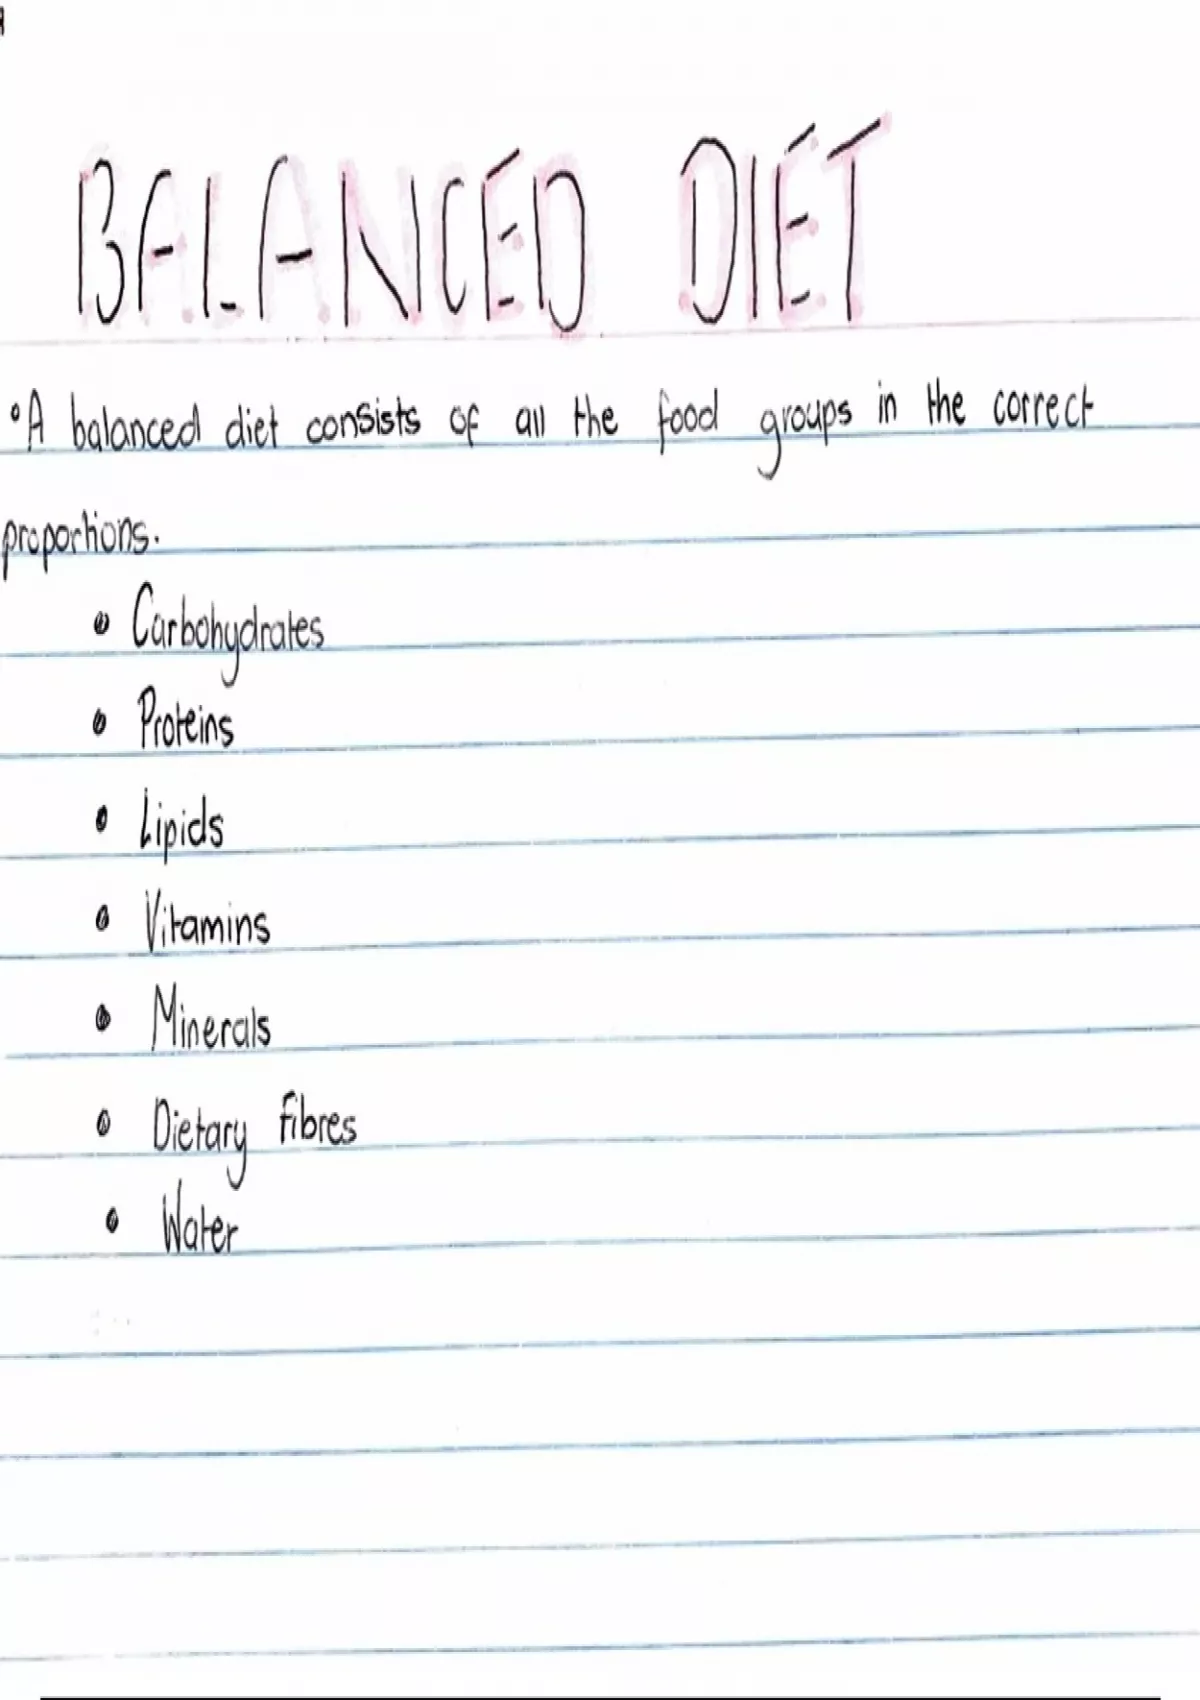 BALANCED DIET
°A balanced diet consists of all the food groups in the correct
proportions.
• Carbohydrates
• Proteins
• Lipids
• Vitamins
• Minerals
• Dietary fibres
• Water